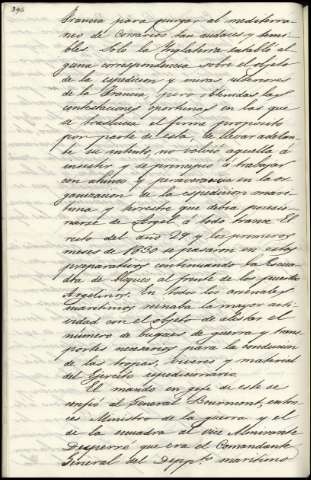 396
Francia para purgar al mediterra-
neo de Corsarios tan audaces y temi-
bles. Solo la Inglaterra entabló al-
guna correspondencia sobre el objeto
de la espedicion y miras ulteriores
de la Francia, pero obtenidas las
contestaciones oportunas en las que
se traslucia el firme proposito
por parte de esta, de llevar adelan-
te su intento, no volvió aquella á
insistir y se principió á trabajar
con ahinco y perseverancia en la or-
ganizacion de la espedicion mari-
tima y terrestre que debia posesio-
narse de Argel á todo trance. El
resto del año 29 y los primeros
meses de 1830 se pasaron en estos
preparativos continuando la Escua-
dra de bloqueo al frente de los puertos
Argelinos. En todos los arsenales
maritimos reinaba la mayor acti-
vidad con el objeto de alistar el
número de buques de guerra y trans-
portes necesarios para la conduccion
de las tropas, viveres y material
del Ejército espedicionario.
El mando en gefe de este se
confió al General Bourmont, enton-
ces Ministro de la guerra y el
de la escuadra al Vice Almirante
Duperré que era el Comandante
General del Depptº maritimo